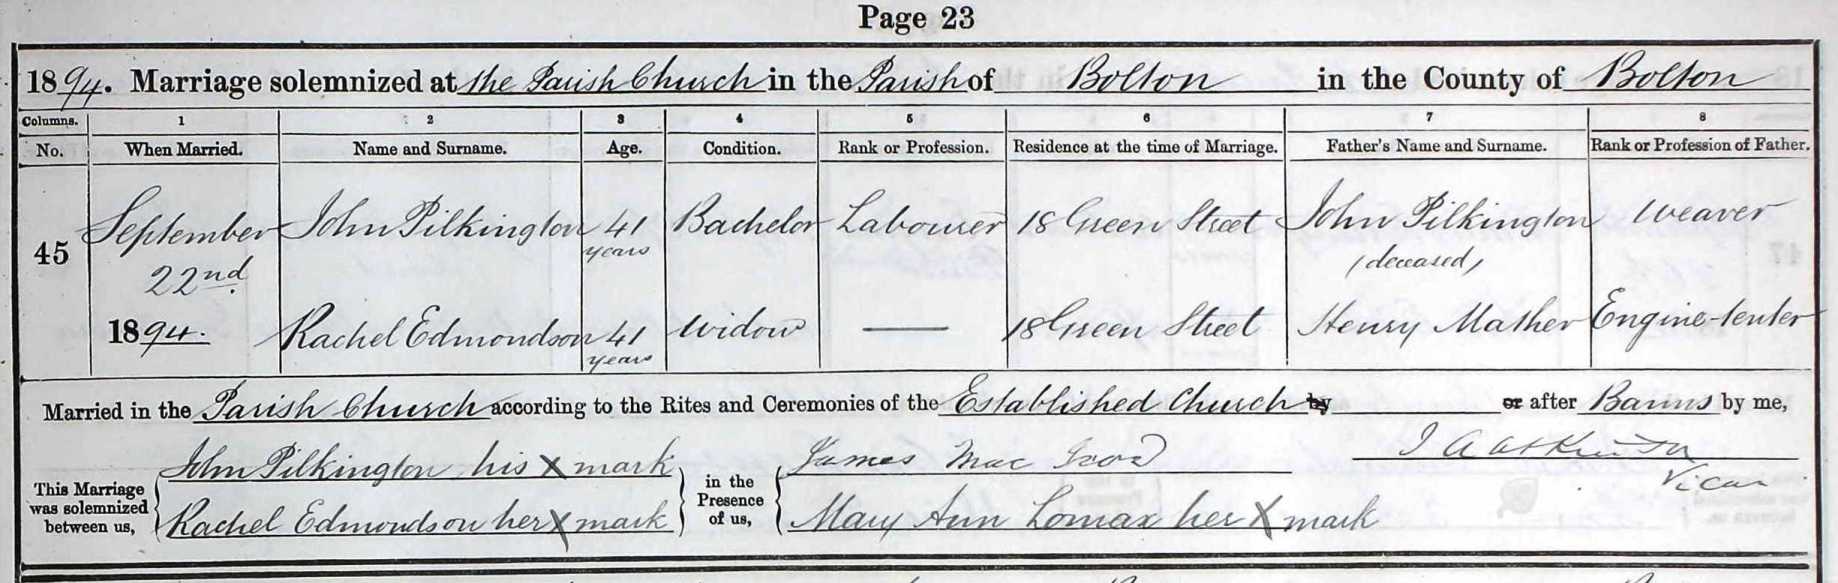 Page 23
1894. Marriage solemnized at the Parish Church in the Parish of Bolton in the County of Bolton
Columns. 1 2 3 4 5 6 7 8
No. When Married. Name and Surname. Age. Condition. Rank or Profession. Residence at the time of Marriage. Father's Name and Surname. Rank or Profession of Father.
45 September 22nd 1894.
John Pilkington 41 years Bachelor Labourer 18 Green Street John Pilkington (deceased) Weaver
Rachel Edmondson 41 years Widow — 18 Green Street Henry Mather Engine-tenter
Married in the Parish Church according to the Rites and Ceremonies of the Established Church by or after Banns by me,
This Marriage was solemnized between us, John Pilkington his X mark in the Presence of us, James Mac
Rachel Edmondson her X mark Mary Ann Lomax her X mark
Vicar